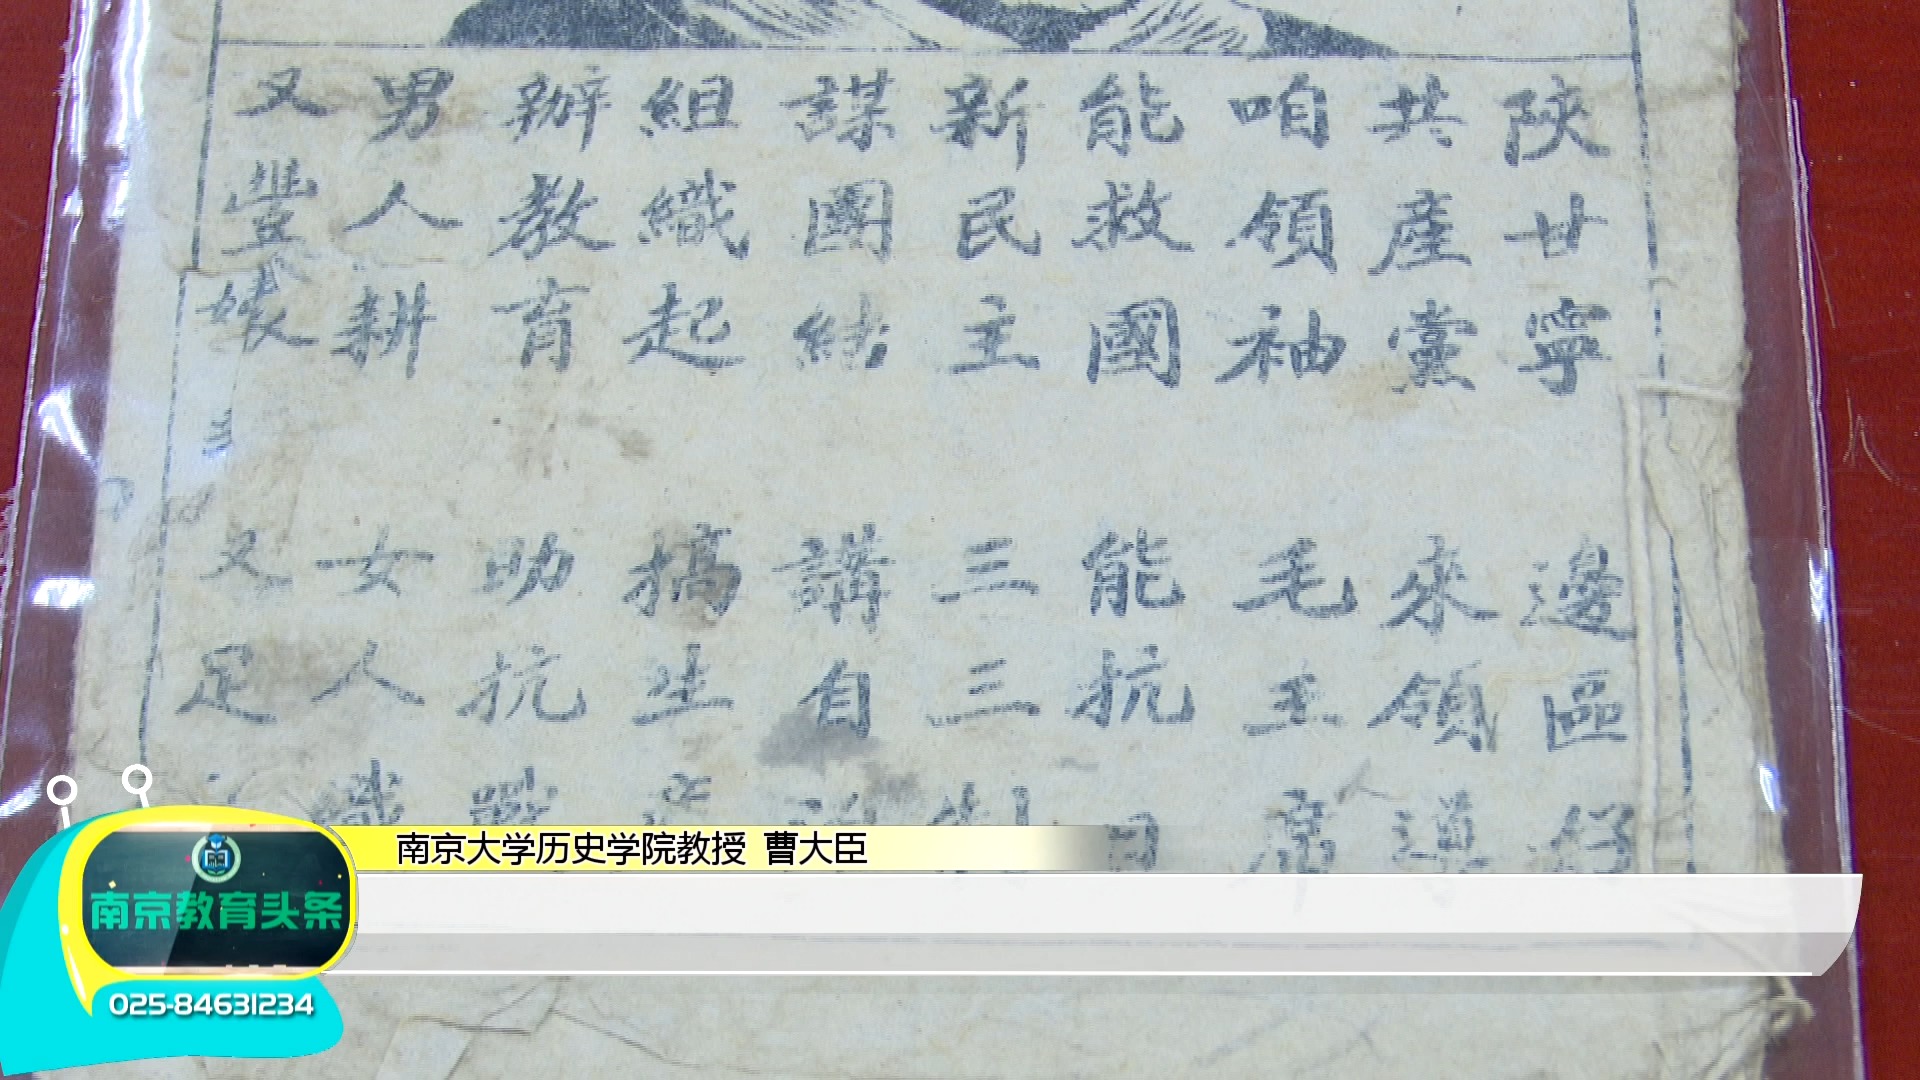 陝甘寧 邊區好
共產黨 來領導
咱領袖 毛主席
能救國 能抗日
新民主 三三制
謀團結 講自
組織起 搞生產
辦教育 助抗戰
男人耕 女人織
又豐 又足
南京大学历史学院教授 曹大臣
南京教育头条
025-84631234